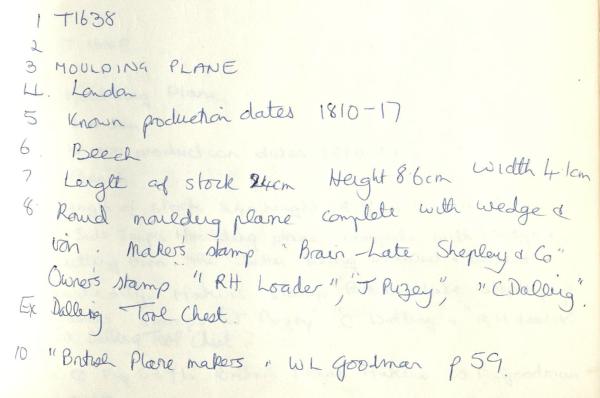 1 T1638
2
3 MOULDING PLANE
4. London
5 Known production dates 1810-17
6. Beech
7 Length of stock 24cm Height 8.6cm Width 4.1cm
8. Round moulding plane complete with wedge &
iron. Makers stamp "Brain - Late Shepley & Co"
Owner's stamp "RH Loader", "J Puzey", "C Dalling".
Ex Dalling Tool Chest.
10 "British Plane makers" WL Goodman p 59.